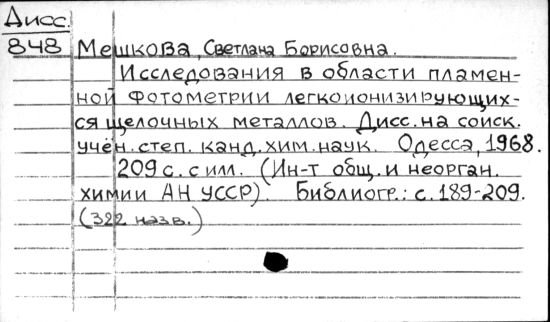 Дисс.
848 Мешкова, Светлана Борисовна.
Исследования в области пламен-
ной фотометрии легкоионизирующих-
ся щелочных металлов. Дисс. на соиск.
учён. степ. канд. хим. наук. Одесса, 1968.
209 с. с илл. (Ин-т общ. и неорган.
химии АН УССР). Библиогр.: с. 189-209.
(322 назв.)